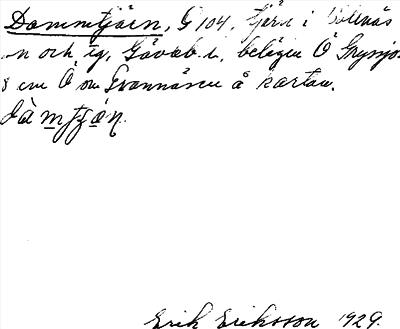 Dammtjärn, G 104, tjärn i Bollnäs
sn och tg, Gävleb. l., belägen Ö Grysjö-
8 cm Ö om Svannäsen å kartan.
dàmtjǽṇ.
Erik Eriksson 1929.